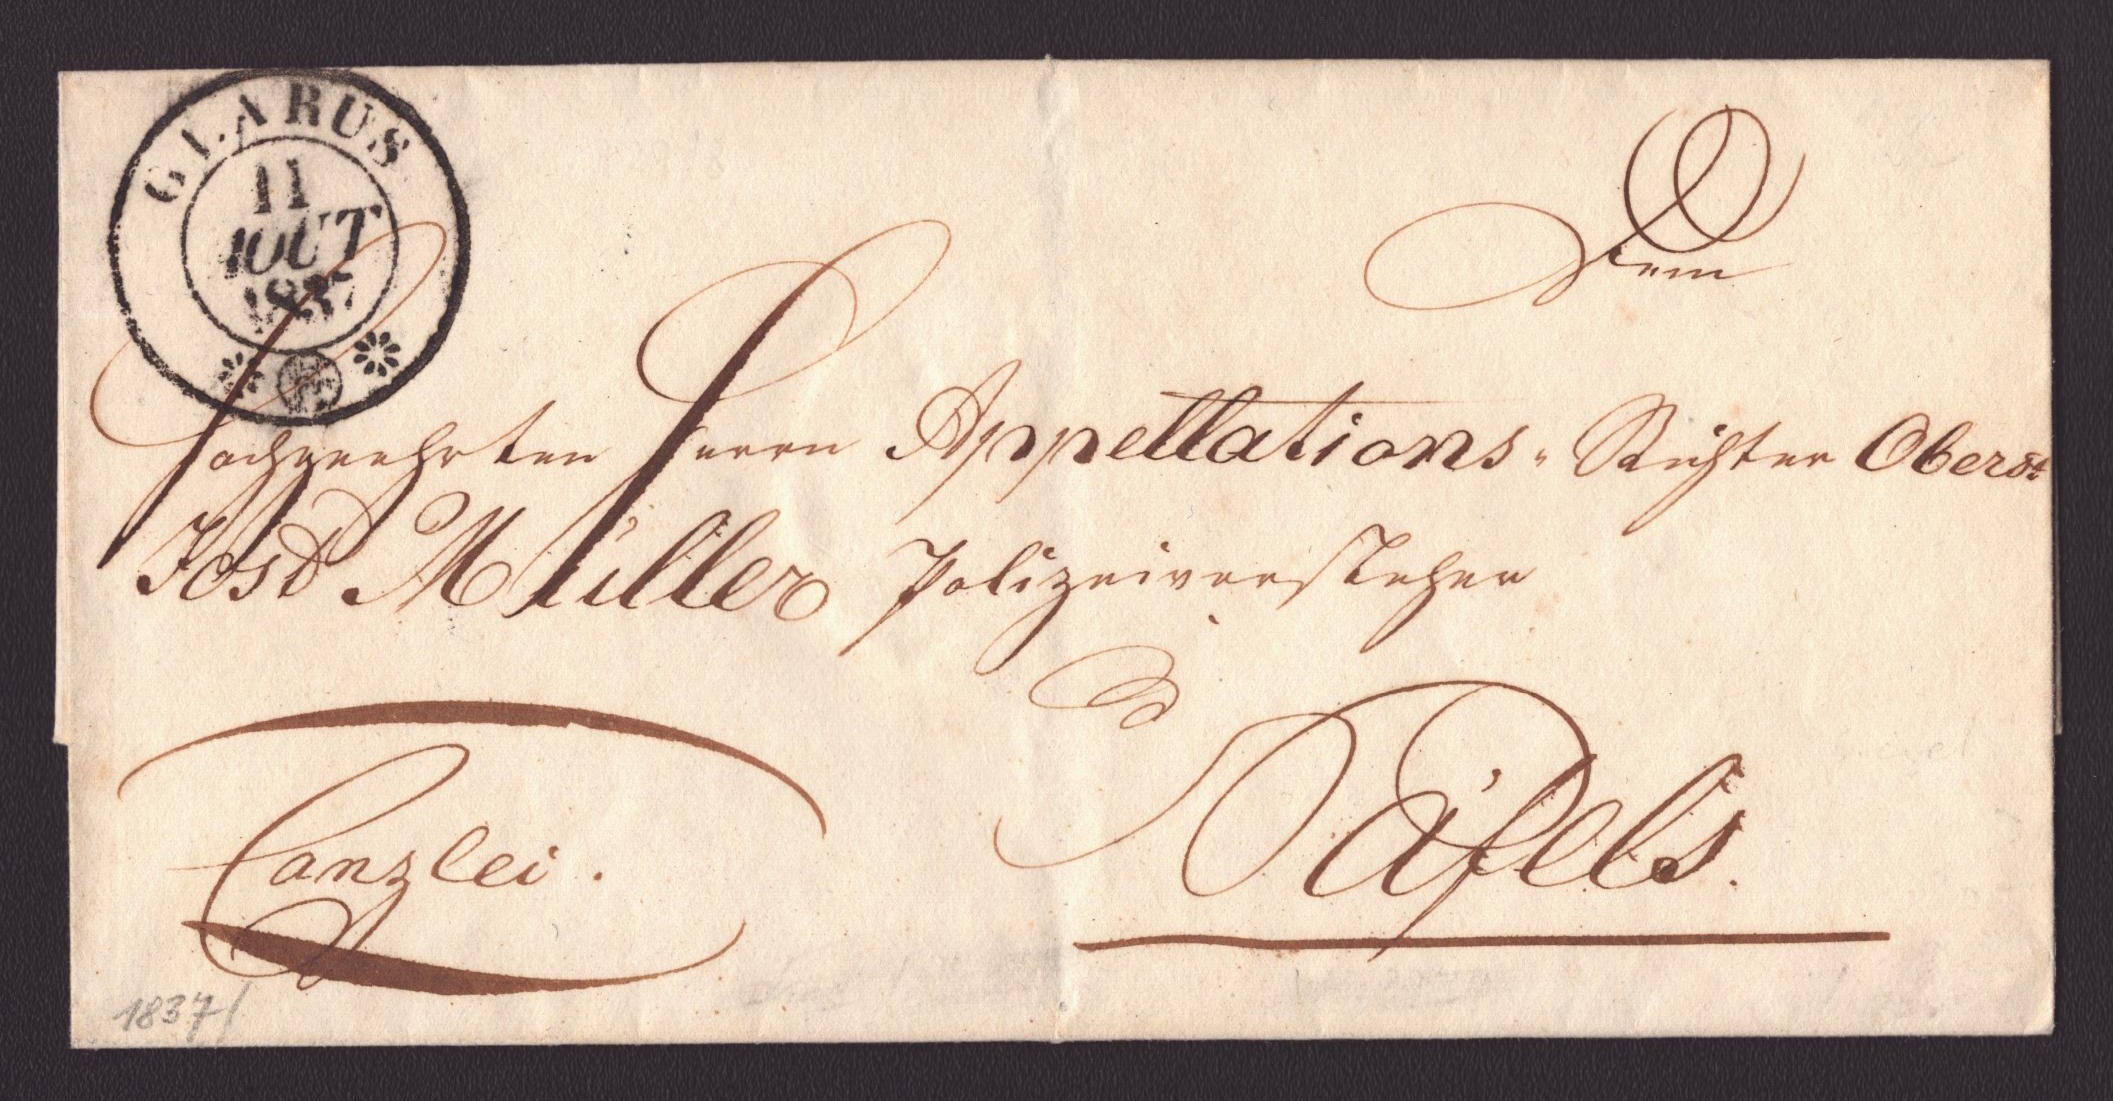 GLARUS
11
AOUT
1837
Dem
Hochgeehrten Herrn Appellations-Richter Oberst
Jost Müller Polizeivorsteher
Näfels.
Canzlei.
1837/